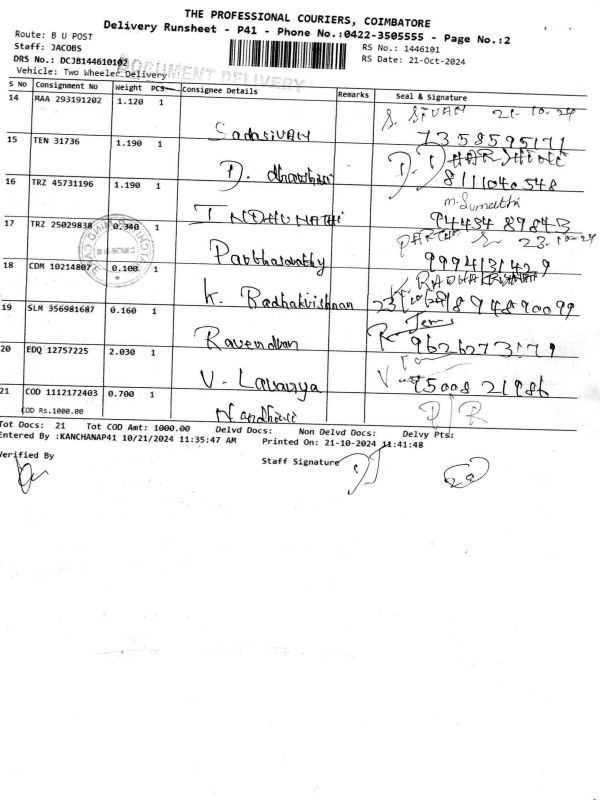 THE PROFESSIONAL COURIERS, COIMBATORE
Delivery Runsheet - P41 - Phone No.:0422-3505555 - Page No.:2
Route: B U POST
RS No.: 1446101
Staff: JACOBS
RS Date: 21-Oct-2024
DRS No.: DCJB144610102
DOCUMENT DELIVERY
Vehicle: Two Wheeler Delivery
S No Consignment No Weight PCS Consignee Details Remarks Seal & Signature
14 MAA 293191202 1.120 1 Sadasivan S. SIVAN 21-10-24
7358595171
15 TEN 31736 1.190 1 D. dharshini D. DHARSHINI
8111040548
16 TRZ 45731196 1.190 1 INDHUMATHI m. Sumathi
94434 89843
17 TRZ 25029838 0.340 1 Parthasarathy 23-10-24
9994131429
18 CDM 10214807 0.100 1 K. Radhakrishnan K. RADHAKRISHNAN
894890099
19 SLM 356981687 0.160 1 Ravendran
9626273179
20 EDQ 12757225 2.030 1 V. Lavanya V
75008 21986
21 COD 1112172403 0.700 1 Nandhini
COD Rs.1000.00
Tot Docs: 21 Tot COD Amt: 1000.00 Delvd Docs: Non Delvd Docs: Delvy Pts:
Entered By :KANCHANAP41 10/21/2024 11:35:47 AM Printed On: 21-10-2024 11:41:48
Verified By
Staff Signature